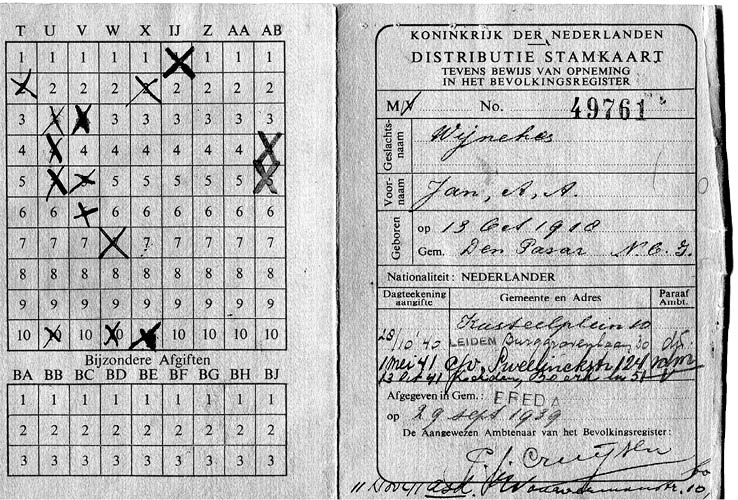 T U V W X IJ Z AA AB
1 1 1 1 1 1 1 1 1
2 2 2 2 2 2 2 2 2
3 3 3 3 3 3 3 3 3
4 4 4 4 4 4 4 4 4
5 5 5 5 5 5 5 5 5
6 6 6 6 6 6 6 6 6
7 7 7 7 7 7 7 7 7
8 8 8 8 8 8 8 8 8
9 9 9 9 9 9 9 9 9
10 10 10 10 10 10 10 10 10
Bijzondere Afgiften
BA BB BC BD BE BF BG BH BJ
1 1 1 1 1 1 1 1 1
2 2 2 2 2 2 2 2 2
3 3 3 3 3 3 3 3 3
KONINKRIJK DER NEDERLANDEN
DISTRIBUTIE STAMKAART
TEVENS BEWIJS VAN OPNEMING
IN HET BEVOLKINGSREGISTER
M/V No. 49761
Geslachtsnaam
Voornaam Jan, A, A.
Geboren op 13 Oct 1918
Gem. Den Pasar N.O.I.
Nationaliteit: NEDERLANDER
Dagteekening aangifte Gemeente en Adres Paraaf Ambt.
Kasteelplein 10
28/10 '40 LEIDEN
1 mei 41 Sweelinckstr 124
13 Oct 41 Leiden
Afgegeven in Gem.: BREDA
op 29 sept 1939
De Aangewezen Ambtenaar van het Bevolkingsregister:
11 Nov 41 asd.